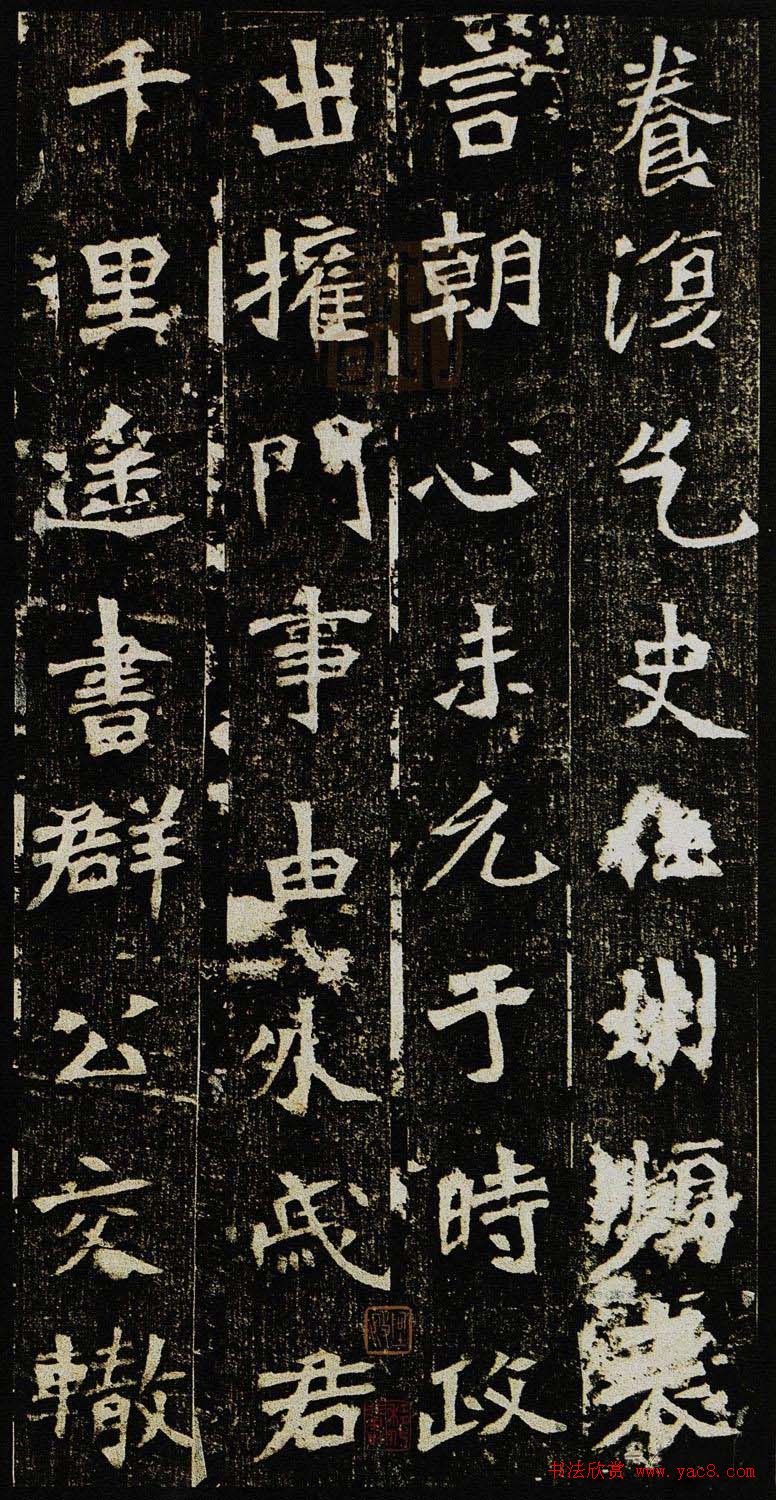 養復乞史州頻表
言朝心未允于時政
出攉門事由外戚君
千里遙書群公交轍
书法欣赏 www.yac8.com